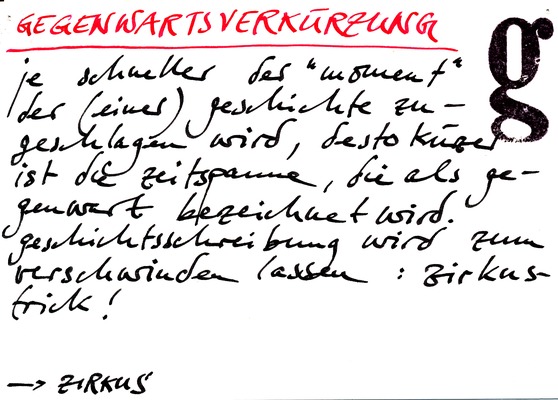 GEGENWARTSVERKÜRZUNG
g
je schneller der "moment"
der (einer) geschichte zu-
geschlagen wird, desto kürzer
ist die zeitspanne, die als ge-
genwart bezeichnet wird.
geschichtsschreibung wird zum
verschwinden lassen : zirkus-
trick!
→ ZIRKUS